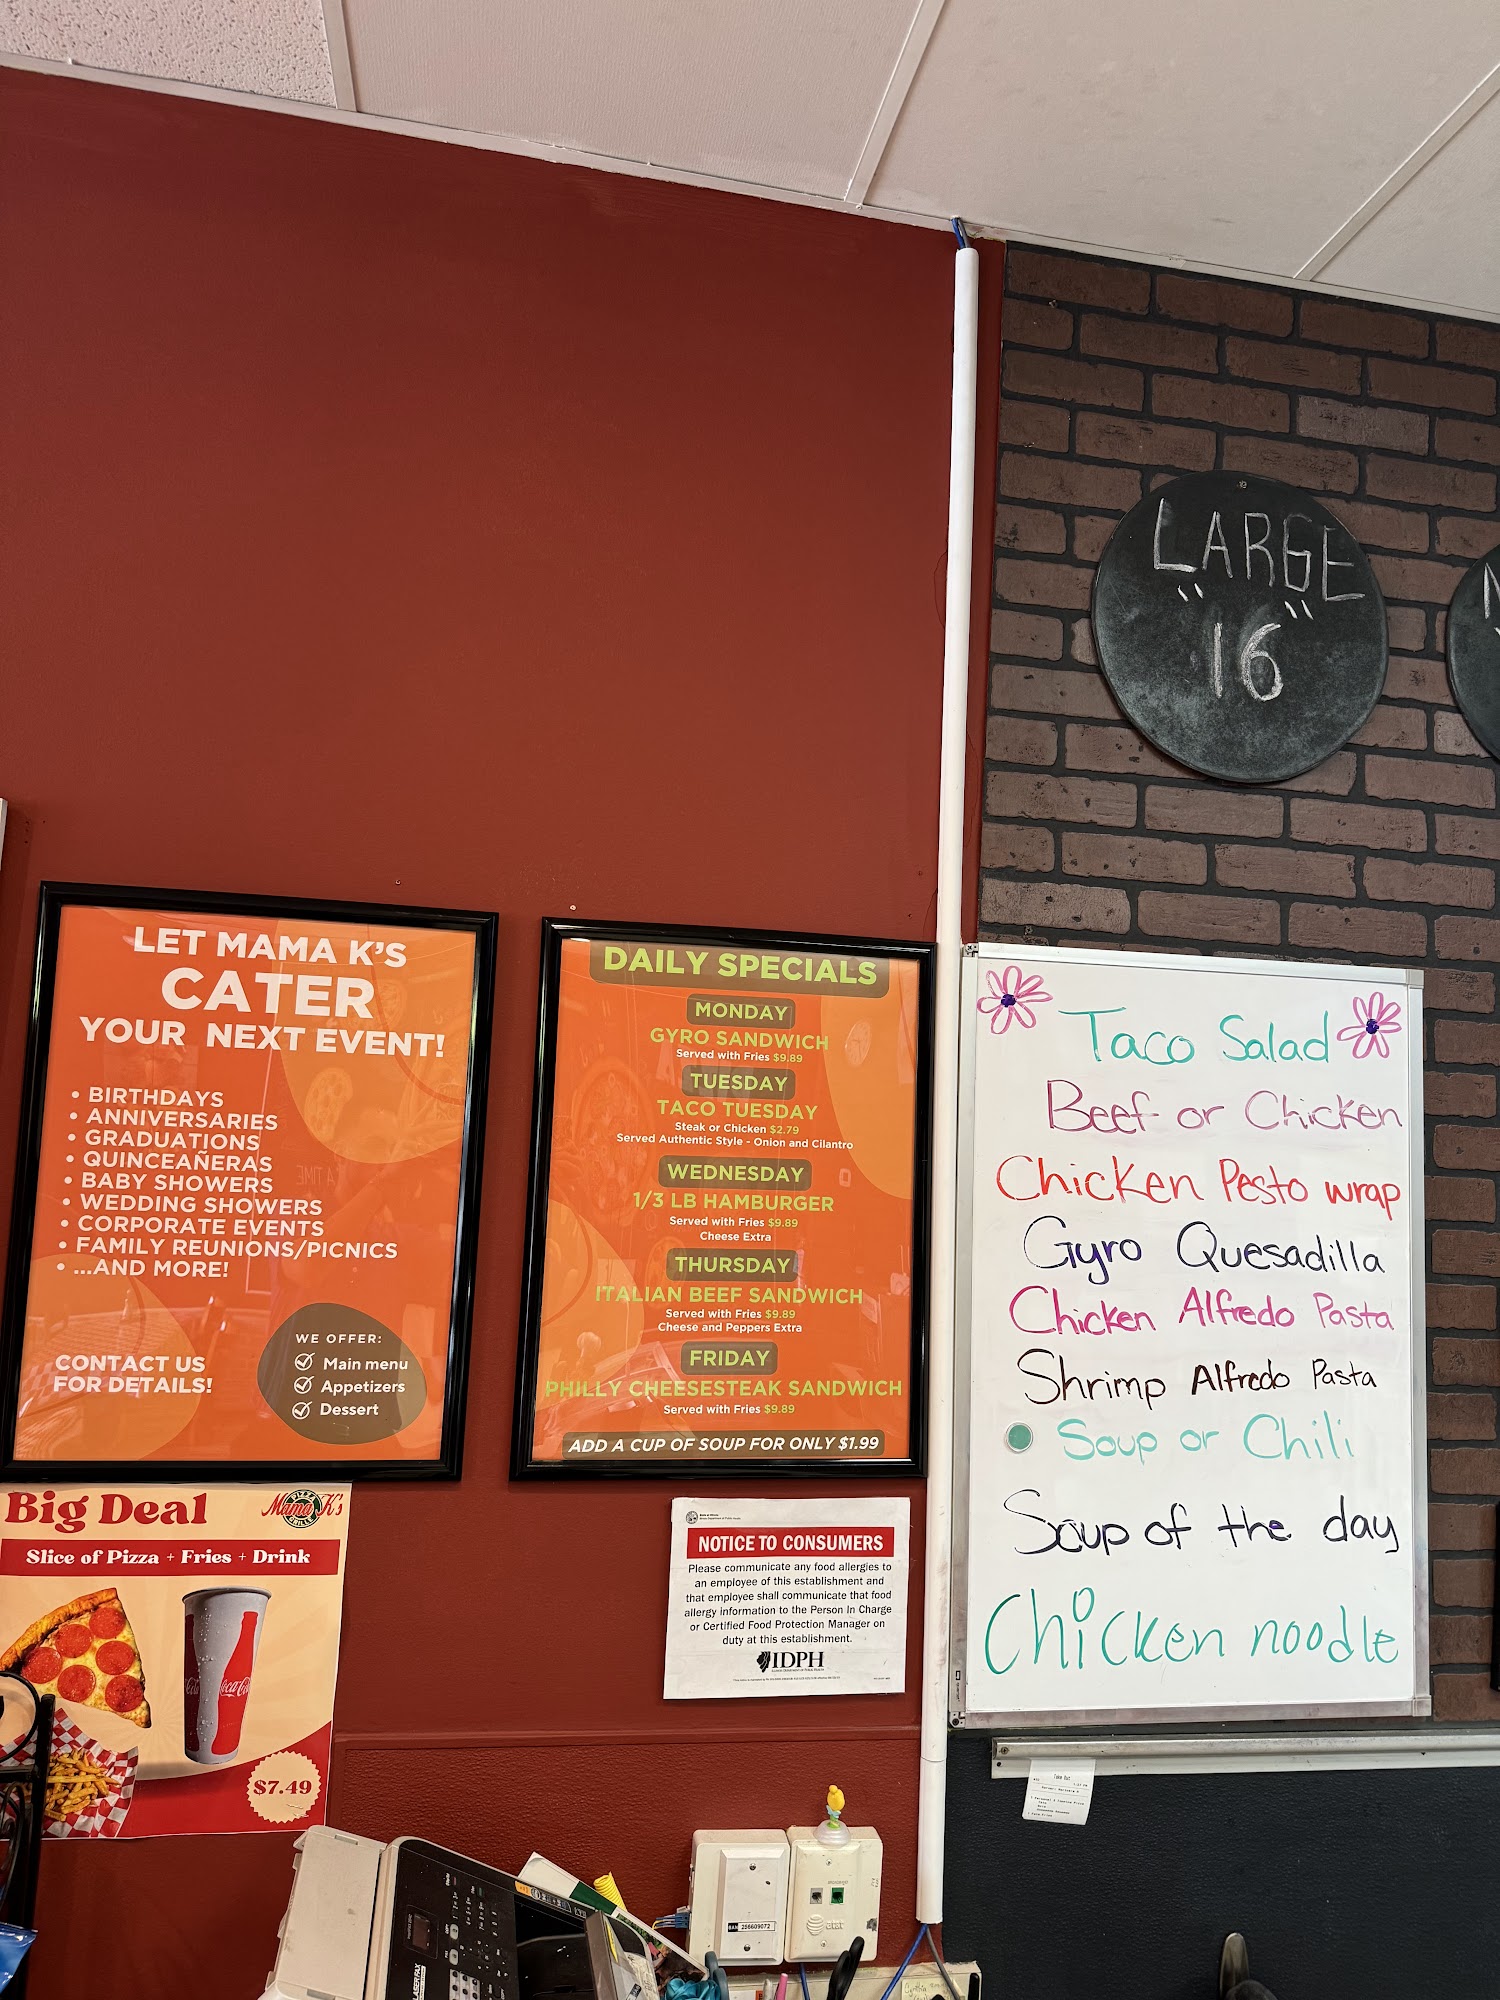 LET MAMA K'S
CATER
YOUR NEXT EVENT!
• BIRTHDAYS
• ANNIVERSARIES
• GRADUATIONS
• QUINCEAÑERAS
• BABY SHOWERS
• WEDDING SHOWERS
• CORPORATE EVENTS
• FAMILY REUNIONS/PICNICS
• ...AND MORE!
CONTACT US
FOR DETAILS!
WE OFFER:
Main menu
Appetizers
Dessert
DAILY SPECIALS
MONDAY
GYRO SANDWICH
Served with Fries $9.89
TUESDAY
TACO TUESDAY
Steak or Chicken $2.79
Served Authentic Style - Onion and Cilantro
WEDNESDAY
1/3 LB HAMBURGER
Served with Fries $9.89
Cheese Extra
THURSDAY
ITALIAN BEEF SANDWICH
Served with Fries $9.89
Cheese and Peppers Extra
FRIDAY
PHILLY CHEESESTEAK SANDWICH
Served with Fries $9.89
ADD A CUP OF SOUP FOR ONLY $1.99
LARGE
"16"
Taco Salad
Beef or Chicken
Chicken Pesto wrap
Gyro Quesadilla
Chicken Alfredo Pasta
Shrimp Alfredo Pasta
Soup or Chili
Soup of the day
Chicken noodle
Big Deal
Mama K's
PIZZA
GRILLE
Slice of Pizza + Fries + Drink
Coca-Cola
$7.49
NOTICE TO CONSUMERS
Please communicate any food allergies to
an employee of this establishment and
that employee shall communicate that food
allergy information to the Person In Charge
or Certified Food Protection Manager on
duty at this establishment.
IDPH
Take Out
BAN 256609072
at&t
LASER FAX
Cynthia